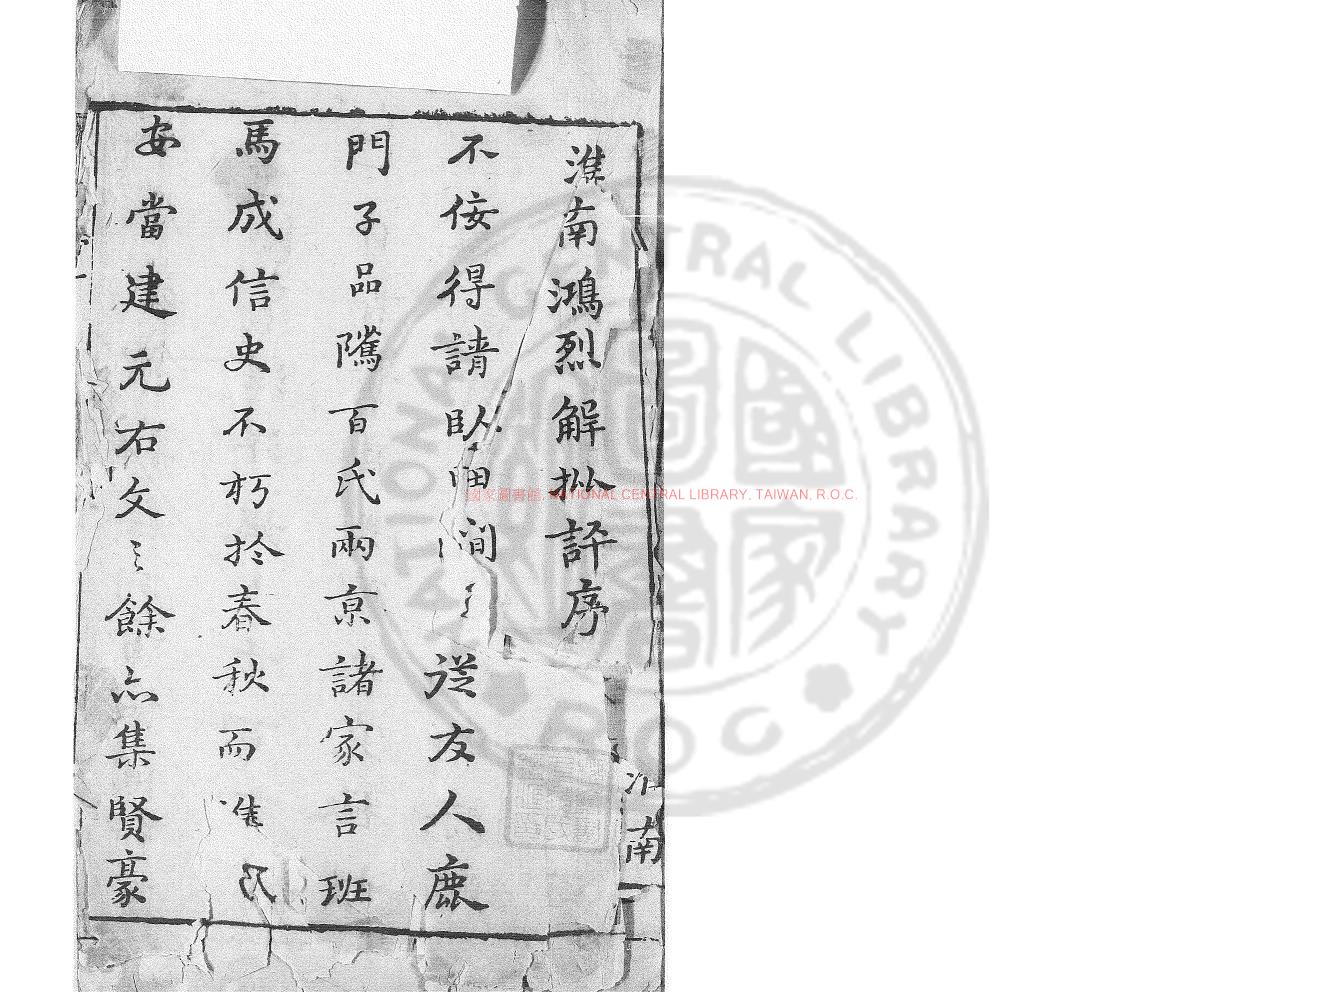 淮南
淮南鴻烈解批評序
不佞得請臥田間之從友人鹿
門子品隲百氏兩京諸家言班
馬成信史不朽於春秋而淮
安當建元右文之餘亦集賢豪
國家圖書館, NATIONAL CENTRAL LIBRARY, TAIWAN, R.O.C.
NATIONAL CENTRAL LIBRARY
ROC
國家圖書